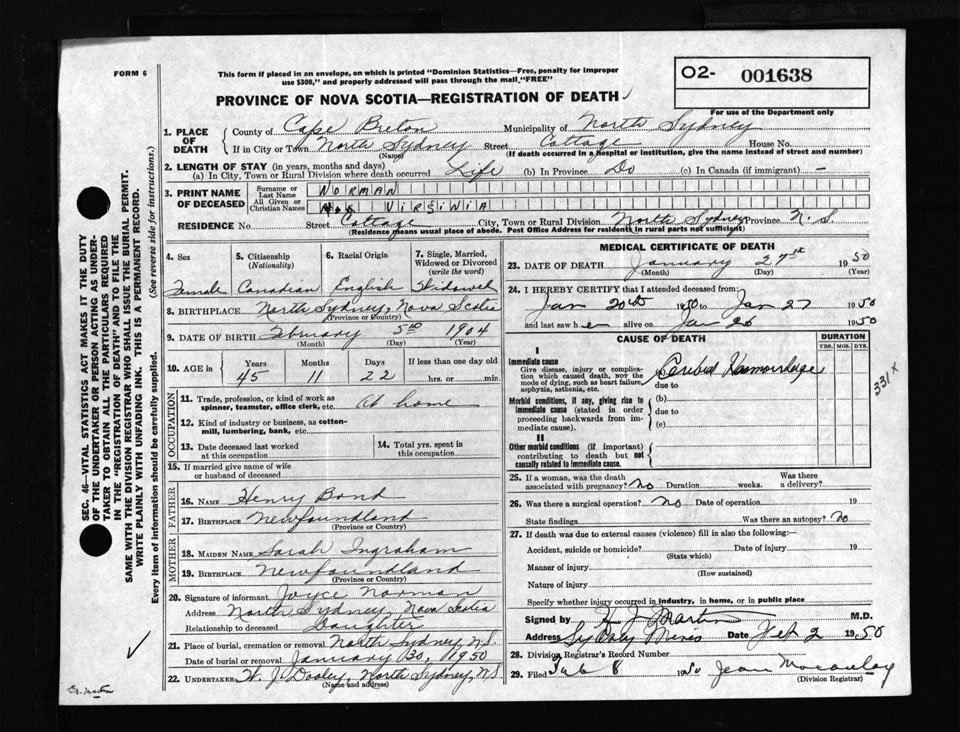 FORM 6
This form if placed in an envelope, on which is printed "Dominion Statistics—Free, penalty for improper
use $300," and properly addressed will pass through the mail "FREE"
PROVINCE OF NOVA SCOTIA—REGISTRATION OF DEATH
O2- 001638
For use of the Department only
1. PLACE OF DEATH County of Cape Breton Municipality of North Sydney
If in City or Town North Sydney Street Cottage House No.
(Name) (If death occurred in a hospital or institution, give the name instead of street and number)
2. LENGTH OF STAY (in years, months and days)
(a) In City, Town or Rural Division where death occurred Life (b) In Province Do (c) In Canada (if immigrant) —
3. PRINT NAME OF DECEASED Surname or Last Name NORMAN
All Given or Christian Names MRS VIRGINIA
RESIDENCE No. Street Cottage City, Town or Rural Division North Sydney Province N. S.
(Residence means usual place of abode. Post Office Address for residents in rural parts not sufficient)
4. Sex 5. Citizenship (Nationality) 6. Racial Origin 7. Single, Married, Widowed or Divorced (write the word)
Female Canadian English Widowed
8. BIRTHPLACE North Sydney, Nova Scotia
(Province or Country)
9. DATE OF BIRTH February 5th 1904
(Month) (Day) (Year)
10. AGE in Years Months Days If less than one day old
45 11 22 hrs. or min.
OCCUPATION
11. Trade, profession, or kind of work as spinner, teamster, office clerk, etc. At home
12. Kind of industry or business, as cotton-mill, lumbering, bank, etc.
13. Date deceased last worked at this occupation
14. Total yrs. spent in this occupation
15. If married give name of wife or husband of deceased
FATHER
16. NAME Henry Bond
17. BIRTHPLACE Newfoundland
(Province or Country)
MOTHER
18. MAIDEN NAME Sarah Ingraham
19. BIRTHPLACE Newfoundland
(Province or Country)
20. Signature of informant Joyce Norman
Address North Sydney, Nova Scotia
Relationship to deceased Daughter
21. Place of burial, cremation or removal North Sydney, N.S.
Date of burial or removal January 30, 1950
22. UNDERTAKER W. J. Dooley, North Sydney, N.S.
(Name and address)
MEDICAL CERTIFICATE OF DEATH
23. DATE OF DEATH January 27th 1950
(Month) (Day) (Year)
24. I HEREBY CERTIFY that I attended deceased from:
Jan 20th 1950 to Jan 27 1950
and last saw her alive on Jan 26 1950
CAUSE OF DEATH
DURATION
YRS. MOS. DYS.
I
Immediate cause
Give disease, injury or complication which caused death, not the mode of dying, such as heart failure, asphyxia, asthenia, etc.
Haemorrhage
due to
Morbid conditions, if any, giving rise to immediate cause (stated in order proceeding backwards from immediate cause).
(b)
due to
(c)
II
Other morbid conditions (if important) contributing to death but not causally related to immediate cause.
331 x
25. If a woman, was the death associated with pregnancy? No Duration weeks. Was there a delivery?
26. Was there a surgical operation? No Date of operation 19
State findings Was there an autopsy? No
27. If death was due to external causes (violence) fill in also the following:—
Accident, suicide or homicide? Date of injury 19
(State which)
Manner of injury
(How sustained)
Nature of injury
Specify whether injury occurred in industry, in home, or in public place
Signed by H J Martin M.D.
Address Sydney Mines Date Feb 2 1950
28. Division Registrar's Record Number
29. Filed Feb 8 1950 Jean Macaulay
(Division Registrar)
SEC. 46—VITAL STATISTICS ACT MAKES IT THE DUTY
OF THE UNDERTAKER OR PERSON ACTING AS UNDER-
TAKER TO OBTAIN ALL THE PARTICULARS REQUIRED
IN THE "REGISTRATION OF DEATH" AND TO FILE THE
SAME WITH THE DIVISION REGISTRAR WHO SHALL ISSUE THE BURIAL PERMIT.
WRITE PLAINLY WITH UNFADING INK. THIS IS A PERMANENT RECORD.
Every item of information should be carefully supplied. (See reverse side for instructions.)